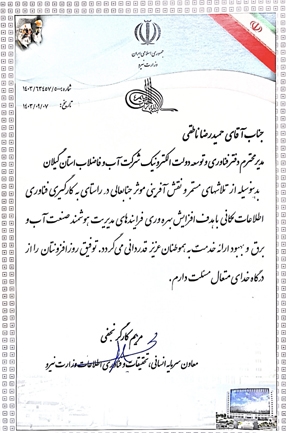 جمهوری اسلامی ایران
وزارت نیرو
شماره: ۱۴۰۳/۶۳۴۵۷/۵۰۰
تاریخ: ۱۴۰۳/۰۹/۰۷
جناب آقای حمیدرضا ناطقی
مدیر محترم دفتر فناوری و توسعه دولت الکترونیک شرکت آب و فاضلاب استان گیلان
بدینوسیله از تلاشهای مستمر و نقش آفرینی موثر جنابعالی در راستای به کارگیری فناوری
اطلاعات مکانی با هدف افزایش بهره وری فرایندهای مدیریت هوشمند صنعت آب و
برق و بهبود ارائه خدمت به هموطنان عزیز قدردانی می گردد. توفیق روزافزونتان را از
درگاه خدای متعال مسئلت دارم.
مریم کارگر نجفی
معاون سرمایه انسانی، تحقیقات و فناوری اطلاعات وزارت نیرو